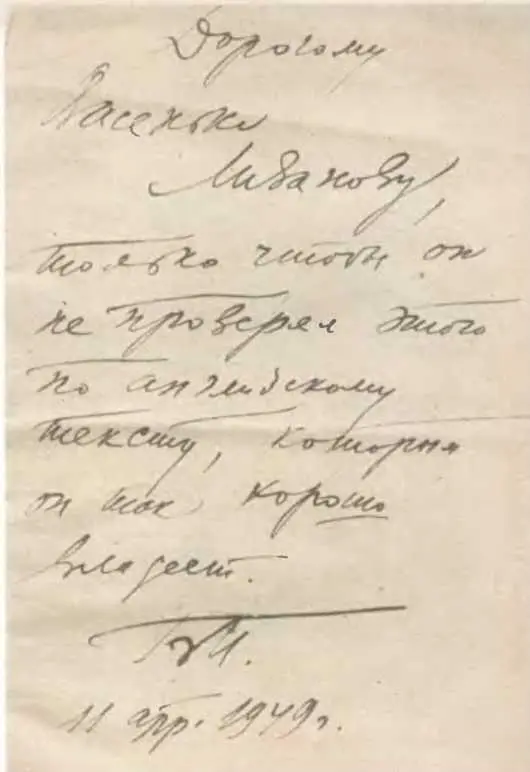 Дорогому
Васеньке
Ливанову,
только чтобы он
не проверял этого
по английскому
тексту, которым
он так хорошо
владеет.
11 апр. 1949 г.